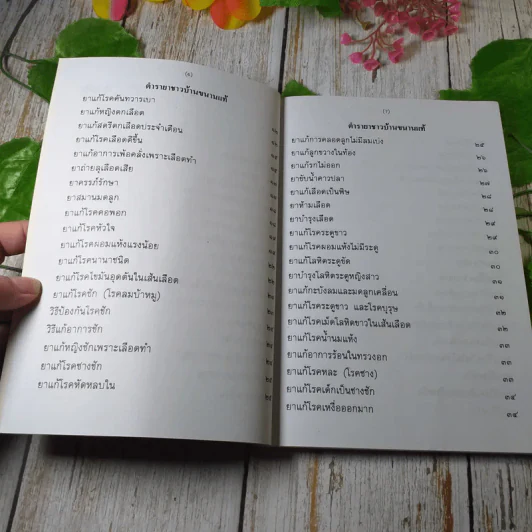 (๖)
ตำรายาชาวบ้านขนานแท้
ยาแก้โรคคันทวารเบา
ยาแก้หญิงตกเลือด
ยาแก้สตรีตกเลือดประจำเดือน
ยาแก้โรคเลือดตีขึ้น
ยาแก้อาการเพ้อคลั่งเพราะเลือดทำ
ยาถ่ายลูเลือดเสีย
ยาครรภ์รักษา
ยาสมานมดลูก
ยาแก้โรคคอพอก
ยาแก้โรคหัวใจ
ยาแก้โรคผอมแห้งแรงน้อย
ยาแก้โรคนานาชนิด
ยาแก้โรคไขมันอุดตันในเส้นเลือด
ยาแก้โรคชัก (โรคลมบ้าหมู)
วิธีป้องกันโรคชัก
วิธีแก้อาการชัก
ยาแก้หญิงชักเพราะเลือดทำ
ยาแก้โรคซางชัก
ยาแก้โรคหัดหลบใน
(๗)
ตำรายาชาวบ้านขนานแท้
ยาแก้การคลอดลูกไม่มีลมเบ่ง ๒๕
ยาแก้ลูกขวางในท้อง ๒๖
ยาแก้รกไม่ออก ๒๖
ยาขับน้ำคาวปลา ๒๗
ยาแก้เลือดเป็นพิษ ๒๘
ยาห้ามเลือด ๒๘
ยาบำรุงเลือด ๒๙
ยาแก้โรคระดูขาว ๒๙
ยาแก้โรคผอมแห้งไม่มีระดู ๓๐
ยาแก้โลหิตระดูขัด ๓๐
ยาบำรุงโลหิตระดูหญิงสาว ๓๑
ยาแก้กะบังลมและมดลูกเคลื่อน ๓๑
ยาแก้โรคระดูขาว และโรคบุรุษ ๓๒
ยาแก้โรคเม็ดโลหิตขาวในเส้นเลือด ๓๒
ยาแก้โรคน้ำนมแห้ง ๓๓
ยาแก้อาการร้อนในทรวงอก ๓๓
ยาแก้โรคหละ (โรคซาง) ๓๓
ยาแก้โรคเด็กเป็นซางชัก ๓๔
ยาแก้โรคเหงื่อออกมาก ๓๔